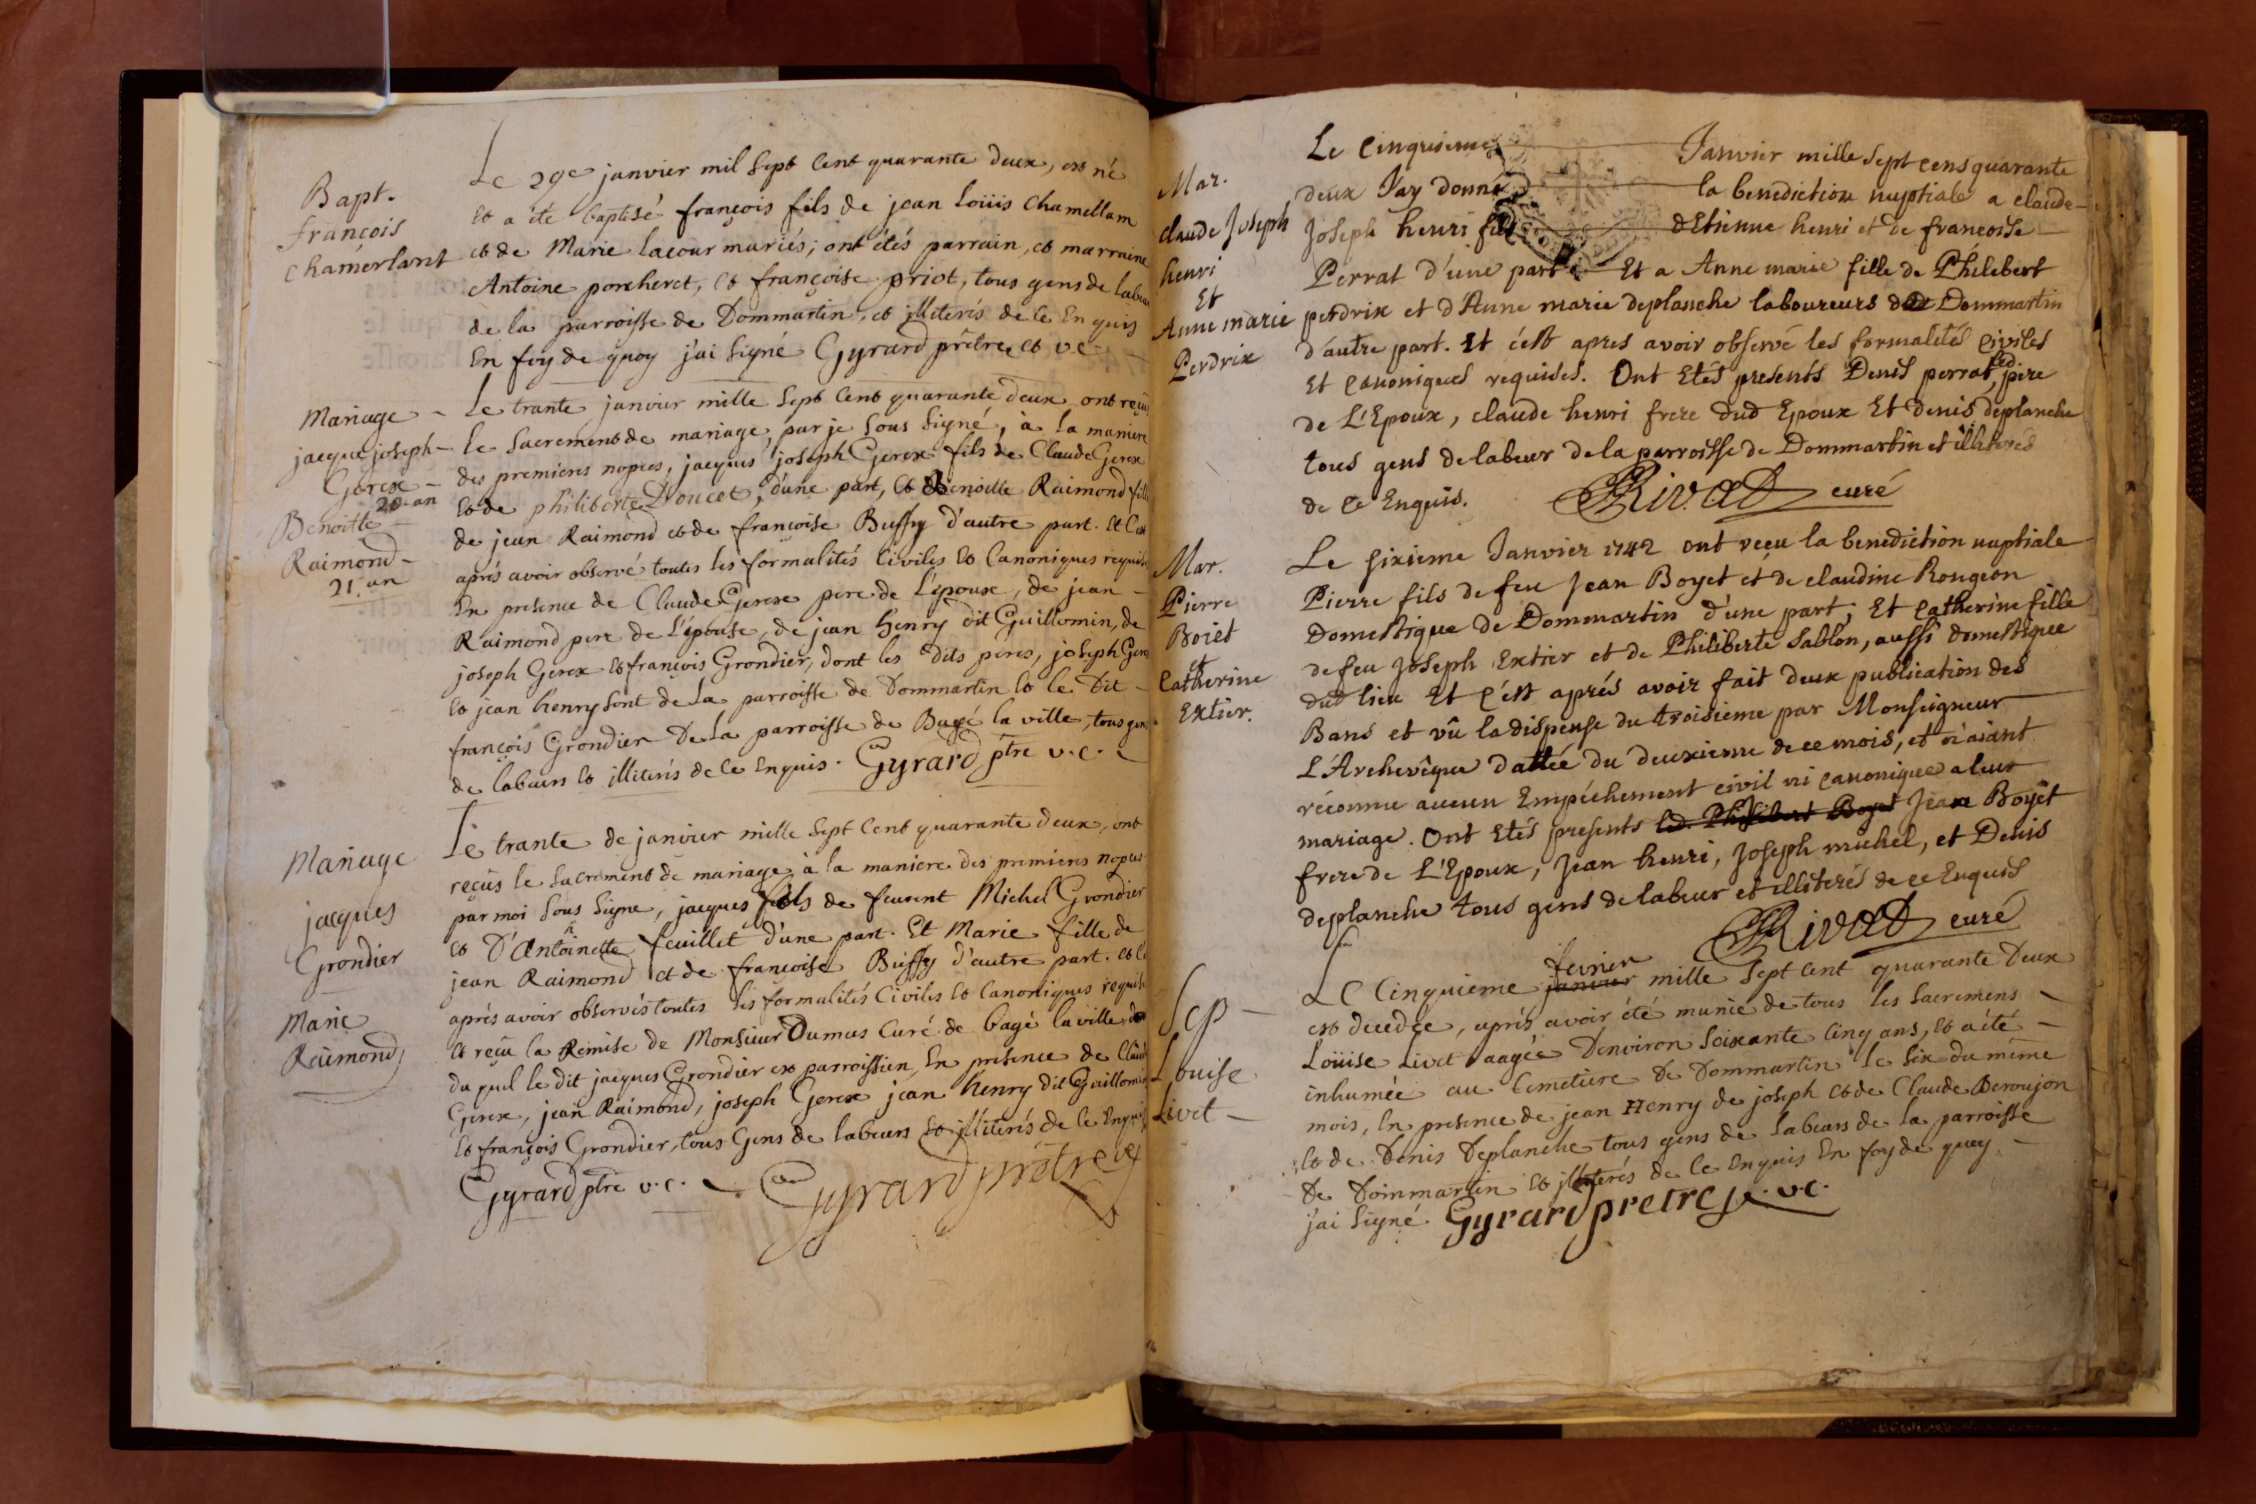 Bapt.
françois
chamerlant
Le 29e janvier mil sept cent quarante deux, est né
et a été baptisé françois fils de jean loüis chamellam
et de Marie lacour mariés; ont étés parrain, et marraine
Antoine porcheret, et françoise priot, tous gens de labeur
de la parroisse de Dommartin, et illiterés de ce Enquis
En foy de quoy j'ai signé Gyrard prêtre et v.c.
Mariage -
jacque joseph -
Gerex -
20 an
Benoitte -
Raimond -
21. an
Le trante janvier mille sept cent quarante deux ont reçu
le sacrement de mariage, par je sous signé, à la maniere
des premieres nopces, jacques joseph Gerex fils de Claude Gerex
et de philiberte Doucet, d'une part, et Benoitte Raimond fille
de jean Raimond et de françoise Buffy d'autre part. et
aprés avoir observé toutes les formalités Civiles et Canoniques requises
En presence de Claude Gerex pere de l'époux, de jean -
Raimond pere de l'épouse, de jean henry dit Guillomin, de
joseph Gerex et françois Grondier, dont les dits peres, joseph Gerex
et jean henry sont de la parroisse de Dommartin et le dit -
françois Grondier de la parroisse de Bagé la ville, tous gens
de labeurs et illiterés de ce Enquis. Gyrard ptre v.c.
Mariage
jacques
Grondier
Marie
Raimond
Le trante de janvier mille sept cent quarante deux, ont
reçus le sacrement de mariage, à la maniere des premieres nopces
par moi sous signe, jacques fils de feurent Michel Grondier
et D'Antoinette feuillet d'une part. Et Marie fille de
jean Raimond et de françoise Buffy d'autre part. et ce
aprés avoir observés toutes les formalités Civiles et Canoniques requises
et reçu la Remise de Monsieur Dumas Curé de bagé la ville
du quel le dit jacques Grondier est parroissien, En presence de Claude
Gerex, jean Raimond, joseph Gerex jean henry dit Guillomin
et françois Grondier, tous Gens de labeurs et illiterés de ce Enquis
Gyrard ptre v.c. - Gyrard prêtre
Mar.
claude Joseph
henri
Et
Anne marie
Perdrix
Le Cinquieme Janvier mille sept cens quarante
deux J'ay donné la benediction nuptiale a claude
Joseph henri fils d'Etienne henri et de francoise
Perrat d'une part Et a Anne marie fille de Philebert
perdrix et d'Anne marie deplanche laboureurs de Dommartin
d'autre part. Et c'est apres avoir observé les formalités civiles
et canoniques requises. Ont Etés presents Denis perrat, led. pere
de L'Epoux, claude henri frere dud Epoux Et denis deplanche
tous gens de labeur de la parroisse de Dommartin et illiterés
de ce Enquis. Rivat curé
Mar.
Pierre
Boiet
et
Catherine
Extier.
Le sixieme Janvier 1742 ont recu la benediction nuptiale
Pierre fils de feu Jean Boyet et de claudine Rongeon
Domestique de Dommartin d'une part; Et Catherine fille
de feu Joseph Extier et de Philiberte Sablon, aussi domestique
dud lieu Et c'est aprés avoir fait deux publication des
Bans et vû la dispense du troisieme par Monseigneur
L'Archevêque dattée du deuxieme de ce mois, et n'aiant
réconnu aucun Empéchement civil ni canonique a leur
mariage. Ont Etés presents led. Philibert Boyet Jean Boyet
frere de L'Epoux, Jean henri, Joseph michel, et Denis
deplanche tous gens de labeur et illiterés de ce Enquis
Rivat curé
Sep -
Louise
Livet -
fevrier
Le Cinquieme janvier mille sept cent quarante deux
est decedée, aprés avoir été munie de tous les sacremens -
Loüise Livet aagée d'environ soixante cinq ans, et a été -
inhumée au Cemetiere de Dommartin le six du même
mois, En presence de jean Henry de joseph et de Claude Beroujon
et de Denis Deplanche tous gens de labeurs de la parroisse
de Dommartin et illiterés de ce Enquis En foy de quoy -
j'ai signé. Gyrard pretre v.c.